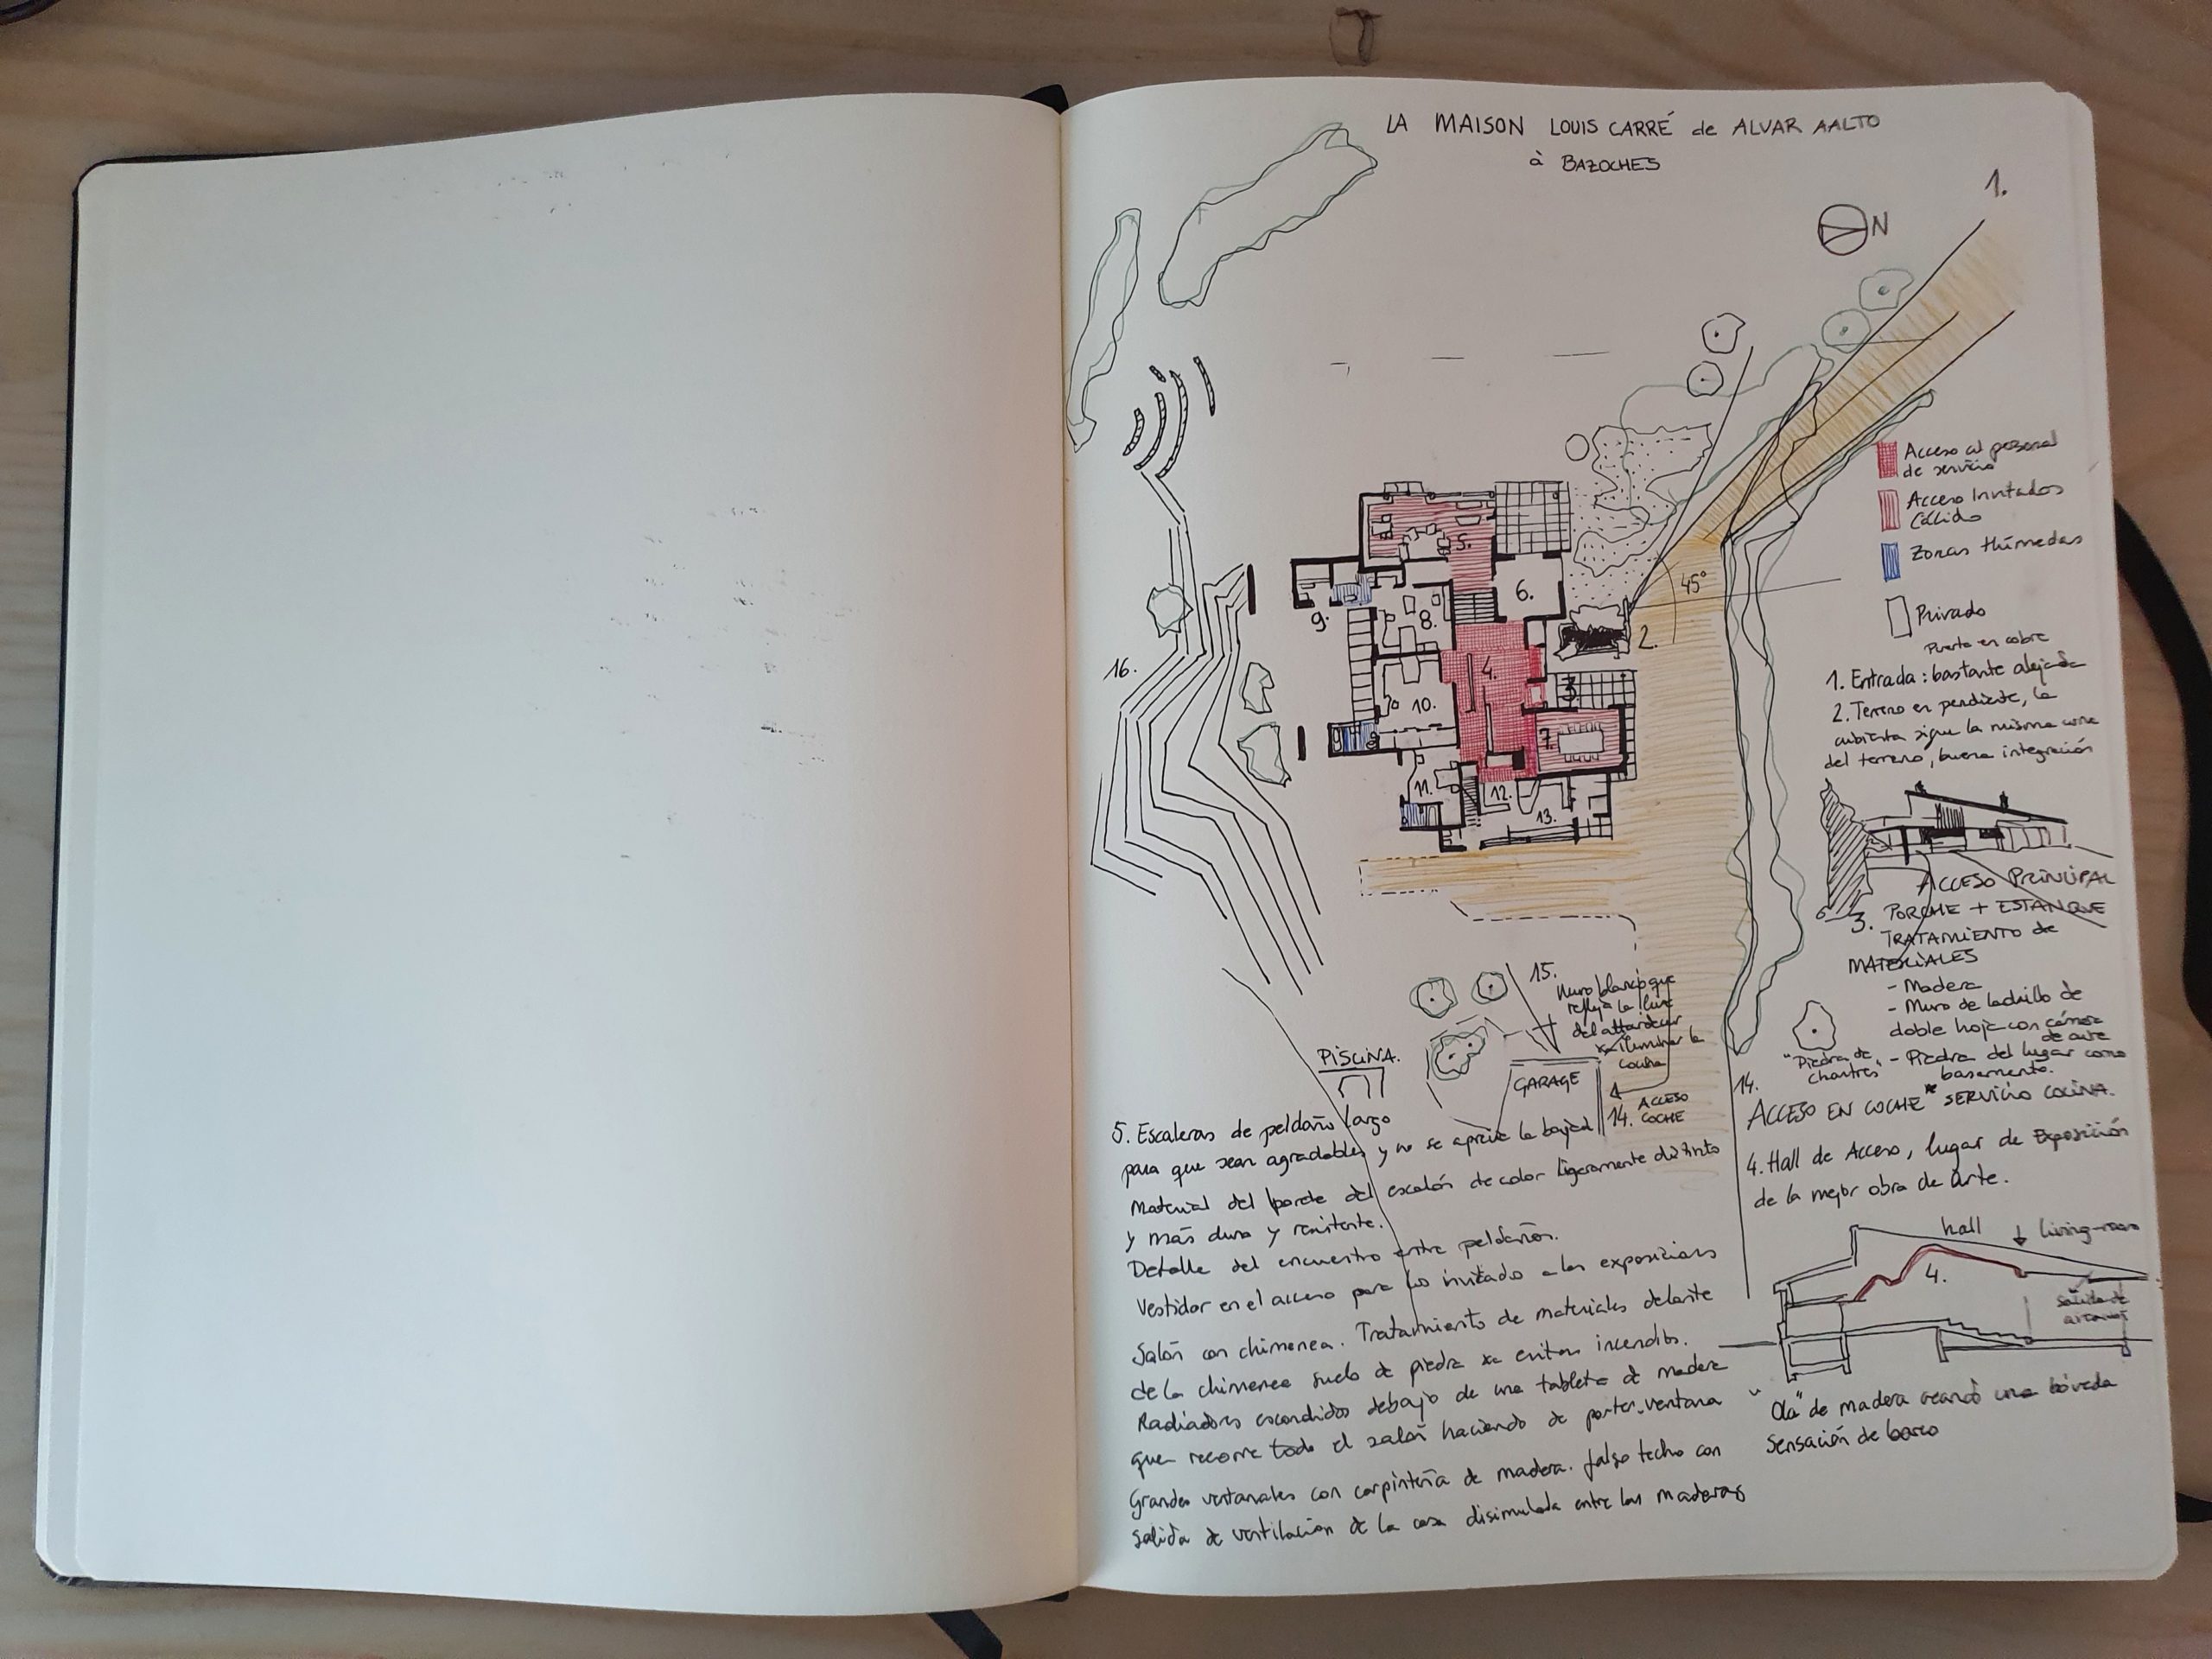 LA MAISON LOUIS CARRÉ de ALVAR AALTO
à BAZOCHES
1.
N
Acceso al personal
de servicio
Acceso Invitados
Zonas Húmedas
Privado
Puerta en cobre
45°
2.
5.
6.
8.
9.
4.
3.
10.
7.
11.
12.
13.
16.
1. Entrada: bastante alejada
2. Terreno en pendiente, la
cubierta sigue la misma
del terreno, buena integración
ACCESO PRINCIPAL
3. PORCHE + ESTANQUE
TRATAMIENTO de
MATERIALES
- Madera
- Muro de ladrillo de
doble hoja con
- Piedra del lugar como
basamento.
"Piedra de
Chartres"
14.
ACCESO EN COCHE * SERVICIO COCINA.
15.
Muro blanco que
refleja la luz
del attardecer
x iluminar la
cocina
PISCINA.
GARAGE
14. ACCESO
COCHE
4. Hall de Acceso, lugar de Exposición
de la mejor obra de Arte.
hall
living-room
4.
salida de
"Ola" de madera creando una bóveda
Sensación de barco
5. Escaleras de peldaño largo
para que sean agradables y no se aprecie la bajada
Material del borde del escalón de color ligeramente distinto
y más duro y resistente.
Detalle del encuentro entre peldaños.
Vestidor en el acceso para lo invitado a las exposiciones
Salón con chimenea. Tratamiento de materiales delante
de la chimenea suelo de piedra xa evitar incendios.
Radiadores escondidos debajo de una tableta de madera
que recorre todo el salón haciendo de porter-ventana
Grandes ventanales con carpintería de madera. falso techo con
salida de ventilación de la casa disimulada entre las maderas